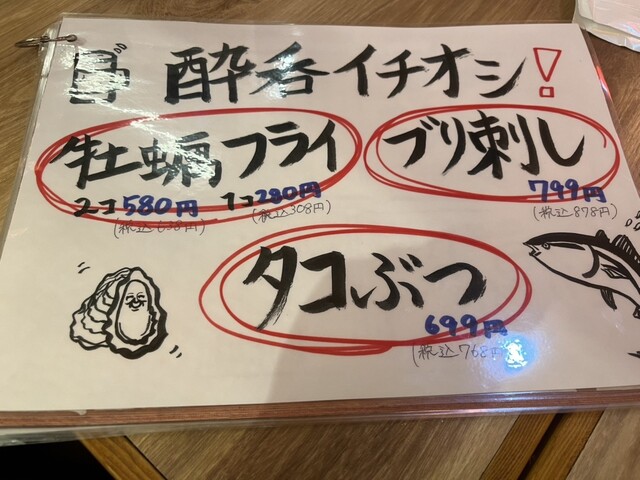 酔呑イチオシ!
牡蠣フライ
2コ580円 1コ280円
(税込638円) (税込308円)
ブリ刺し
799円
(税込878円)
タコぶつ
699円
(税込768円)